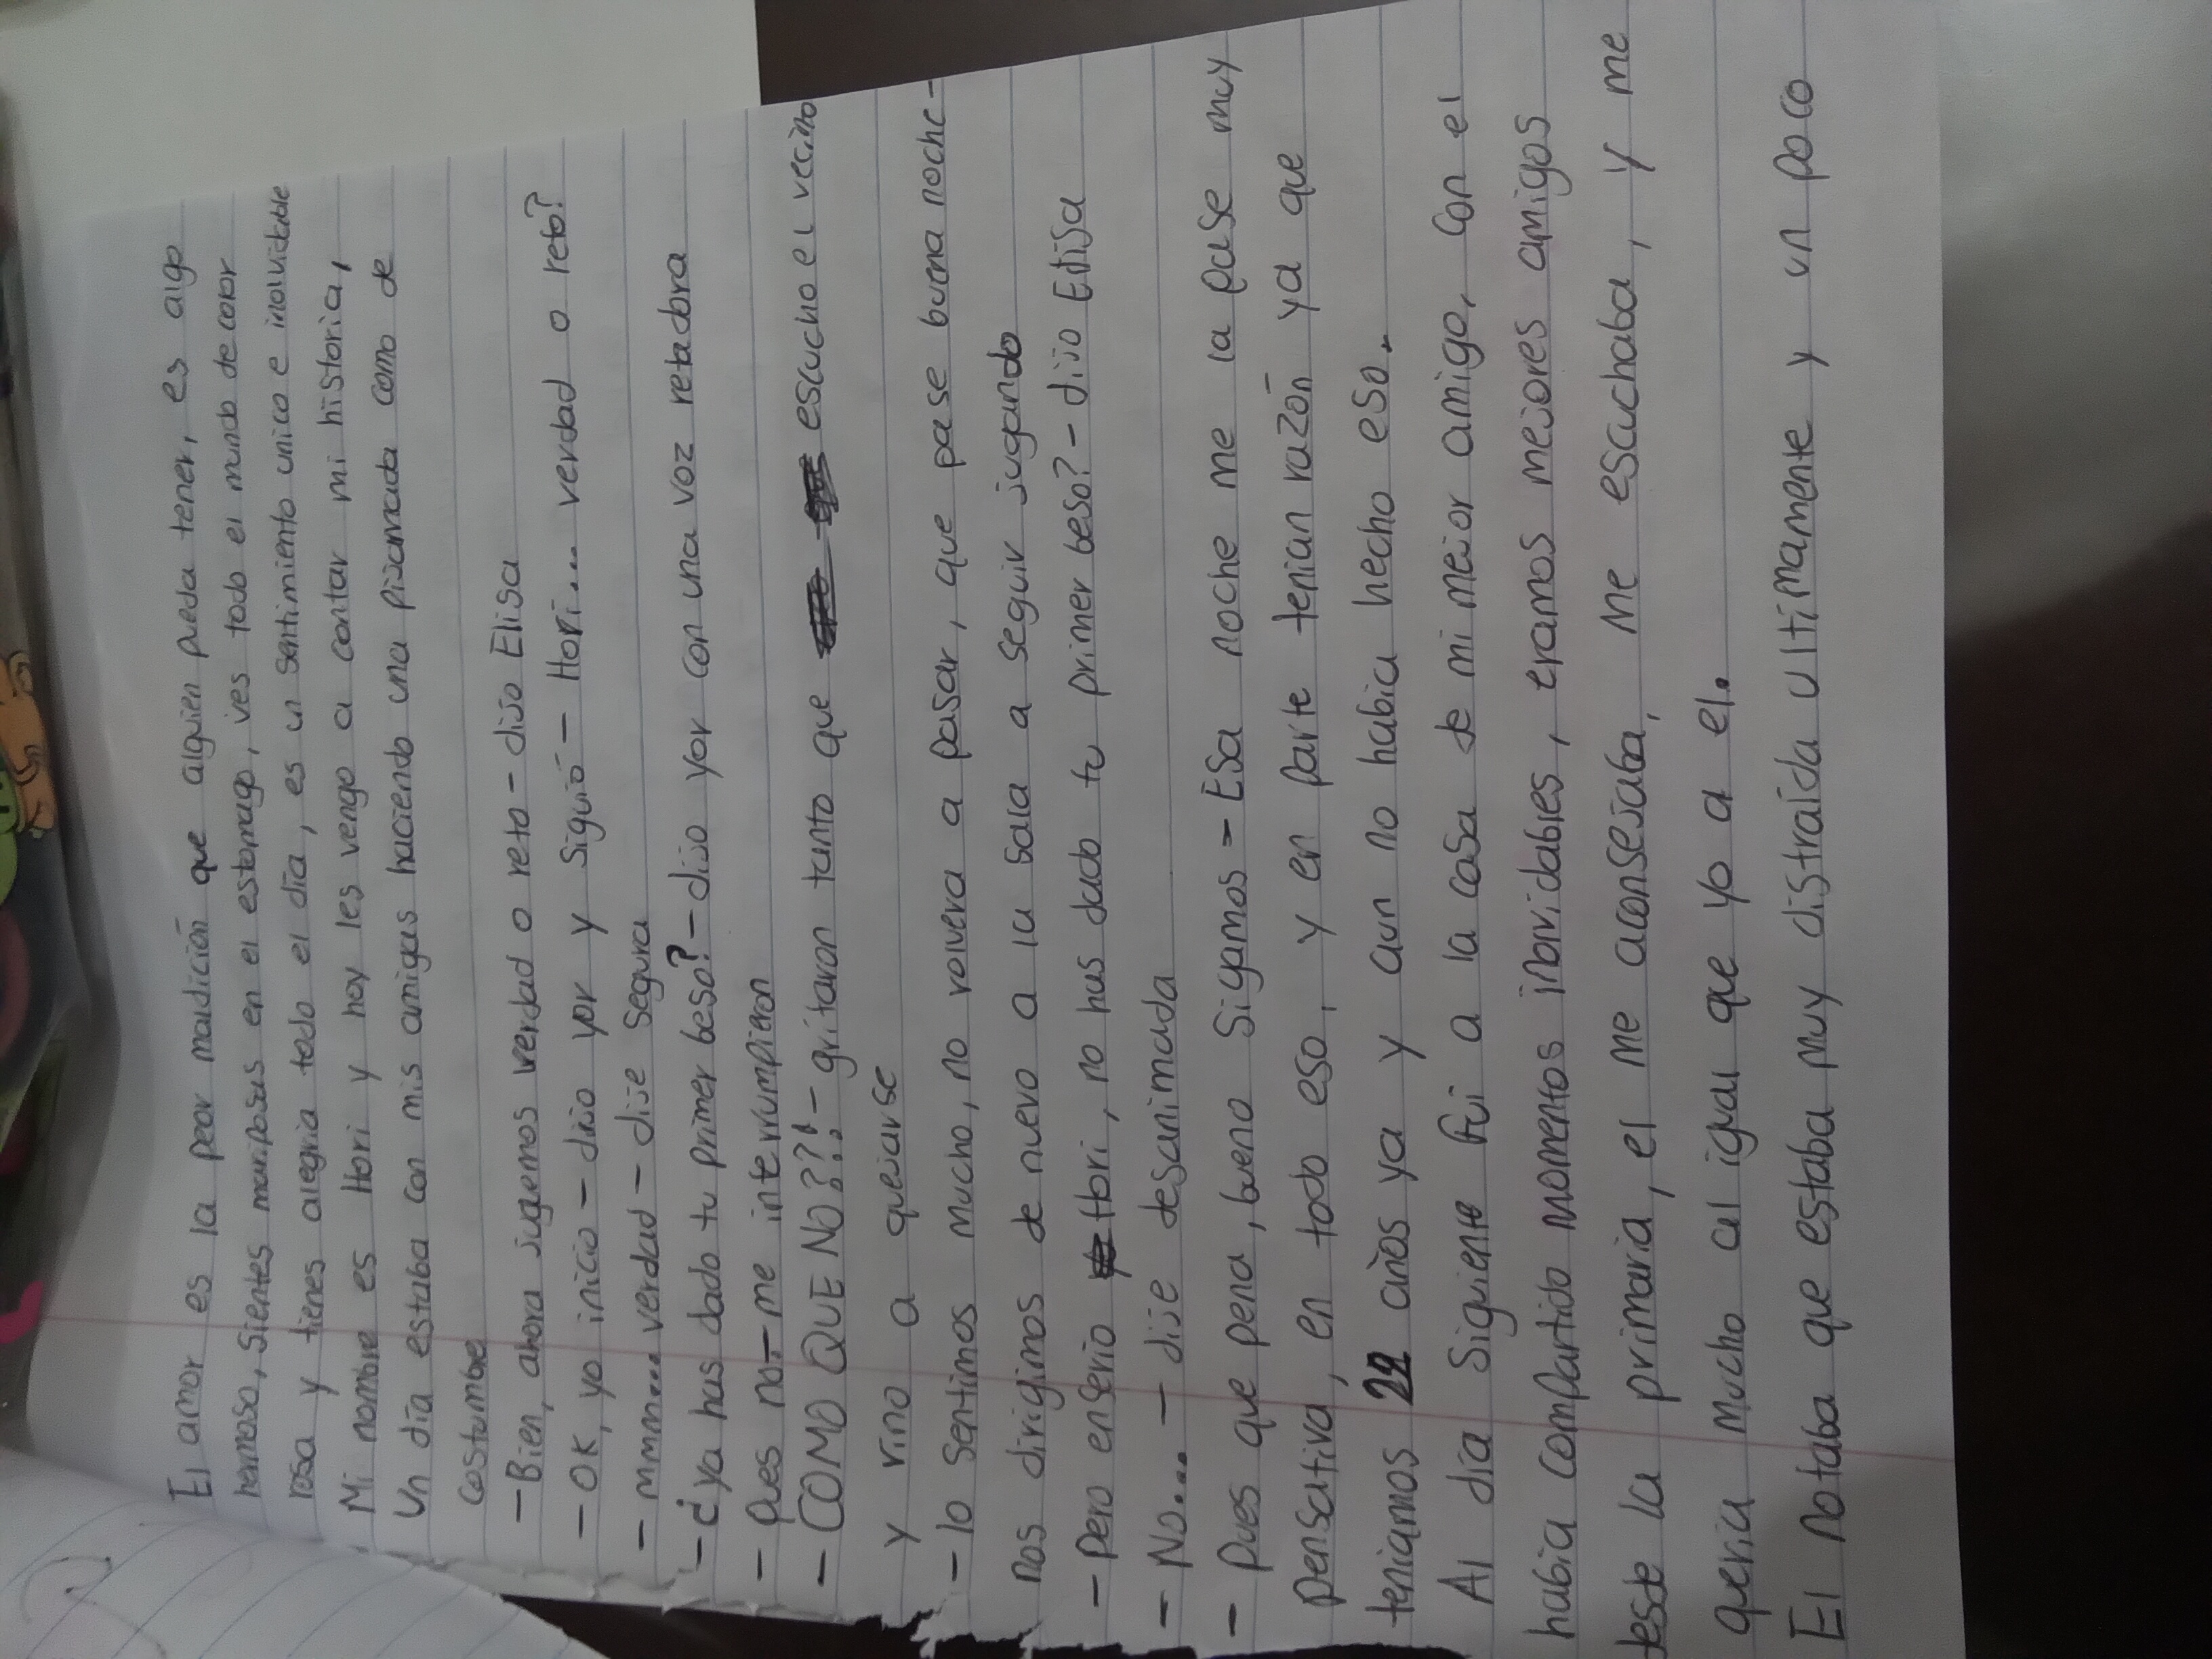 El amor es la peor maldición que alguien pueda tener, es algo
hermoso, sientes mariposas en el estomago, ves todo el mundo de color
rosa y tienes alegria todo el día, es un sentimiento unico e inolvidable
Mi nombre es Hori y hoy les vengo a contar mi historia,
Un día estaba con mis amigas haciendo una pijamada como de
costumbre
- Bien, ahora jugemos verdad o reto - dijo Elisa
- OK, yo inicio - dijo yor y siguió - Hori... verdad o reto?
- mmm... verdad - dije segura
- ¿ya has dado tu primer beso? - dijo yor con una voz retadora
- pues no - me interrumpieron
- COMO QUE NO??! - gritaron tanto que escucho el vecino
y vino a quejarse
- lo sentimos mucho, no volvera a pasar, que pase buena noche -
nos dirigimos de nuevo a la sala a seguir jugando
- pero enserio Hori, no has dado tu primer beso? - dijo Elisa
- No... - dije desanimada
- pues que pena, bueno sigamos = Esa noche me la pase muy
pensativa, en todo eso, y en parte tenian razón ya que
teniamos años ya y aun no habia hecho eso.
Al día siguiente fui a la casa de mi mejor amigo, con el
habia compartido momentos inolvidables, eramos mejores amigos
desde la primaria, el me aconsejaba, me escuchaba, y me
queria mucho al igual que yo a el.
El notaba que estaba muy distraída ultimamente y un poco